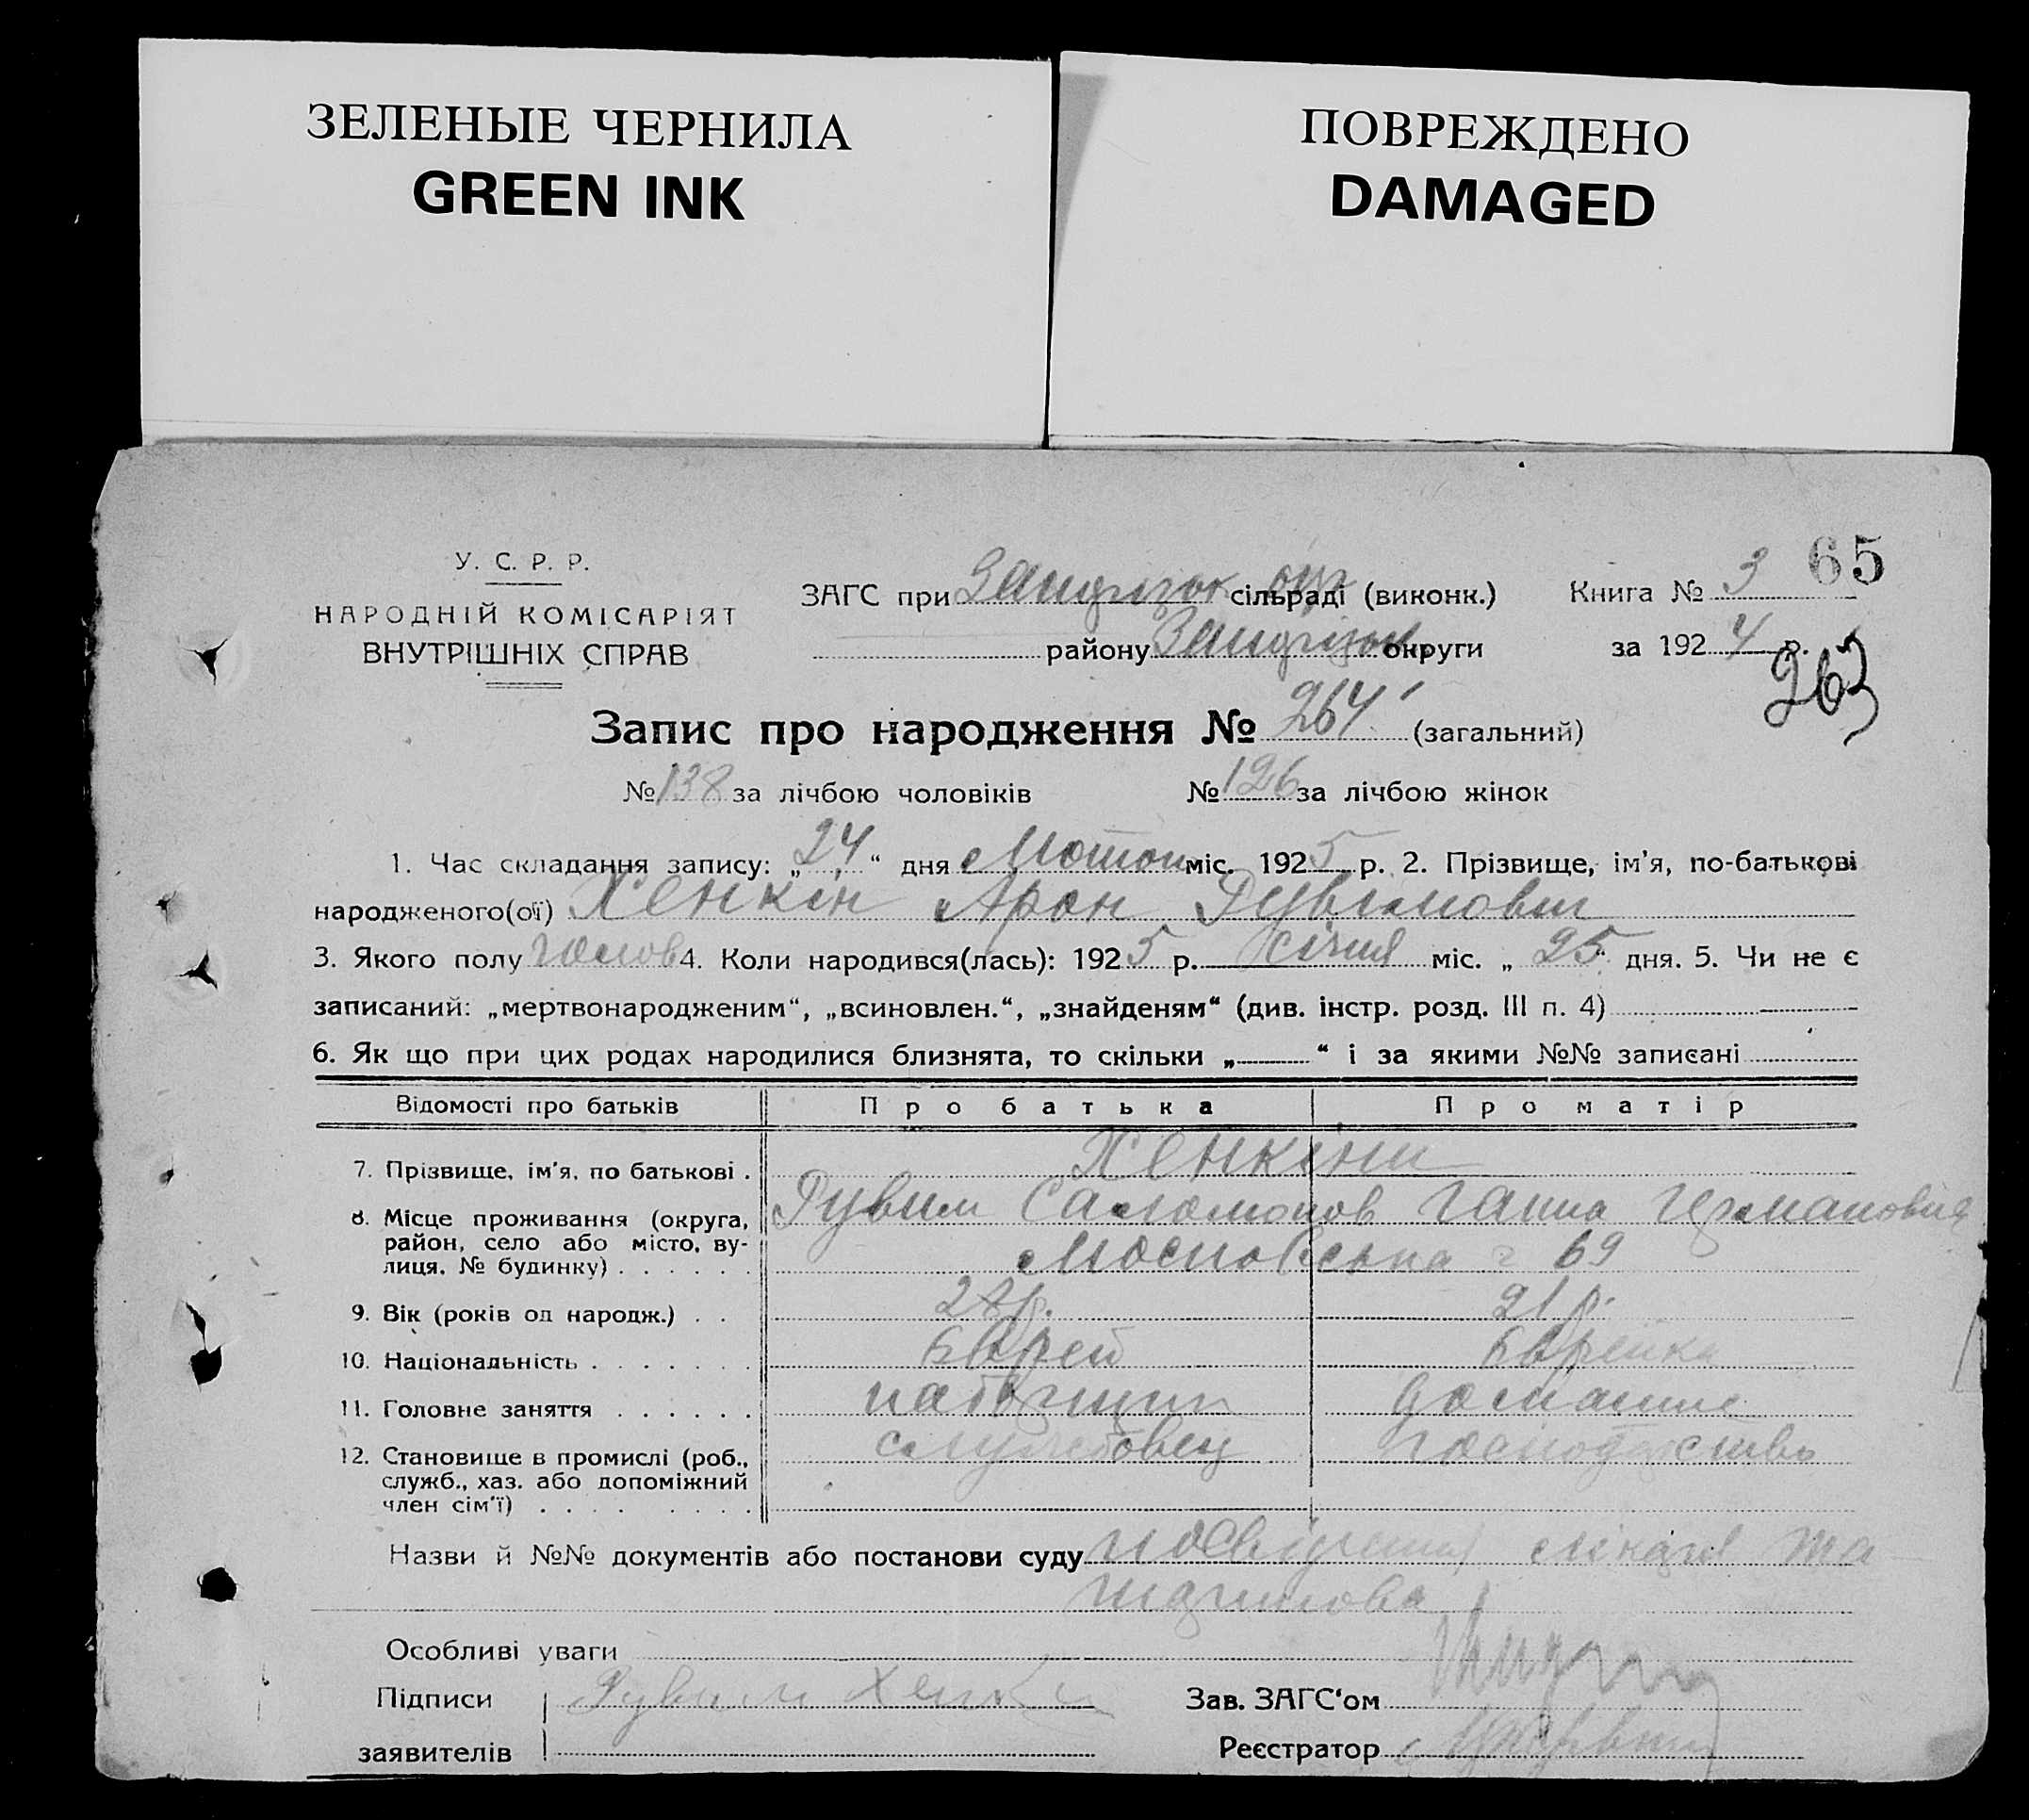 ЗЕЛЕНЫЕ ЧЕРНИЛА
GREEN INK
ПОВРЕЖДЕНО
DAMAGED
65
У. С. Р. Р.
НАРОДНІЙ КОМІСАРІЯТ
ВНУТРІШНІХ СПРАВ
ЗАГС при сільраді (виконк.)
району округи
Книга № 3
за 1924 р.
263
Запис про народження № 264 (загальний)
№ 138 за лічбою чоловіків № 126 за лічбою жінок
1. Час складання запису: „24“ дня міс. 1925 р. 2. Прізвище, ім'я, по-батькові
народженого(ої) Хенкін Арон Рувімович
3. Якого полу чолов 4. Коли народився(лась): 1925 р. січня міс. „25“ дня. 5. Чи не є
записаний: „мертвонародженим“, „всиновлен.“, „знайденям“ (див. інстр. розд. III п. 4)
6. Як що при цих родах народилися близнята, то скільки „ “ і за якими №№ записані
Відомості про батьків Про батька Про матір
7. Прізвище, ім'я, по батькові . Хенкіни
Рувим Саломонов Ганна Германовна
8. Місце проживання (округа,
район, село або місто, ву-
лиця, № будинку) . . . . . . 69
9. Вік (років од народж.) . . 21 р.
10. Національність . . . . . . . Єврей Єврейка
11. Головне заняття . . . . . . домашнє
12. Становище в промислі (роб.,
служб., хаз. або допоміжний
член сім'ї) . . . . . . . . службовец господарство
Назви й №№ документів або постанови суду посвідчення лікаря
Особливі уваги
Підписи Рувим Хенкин
заявителів
Зав. ЗАГС'ом
Реєстратор